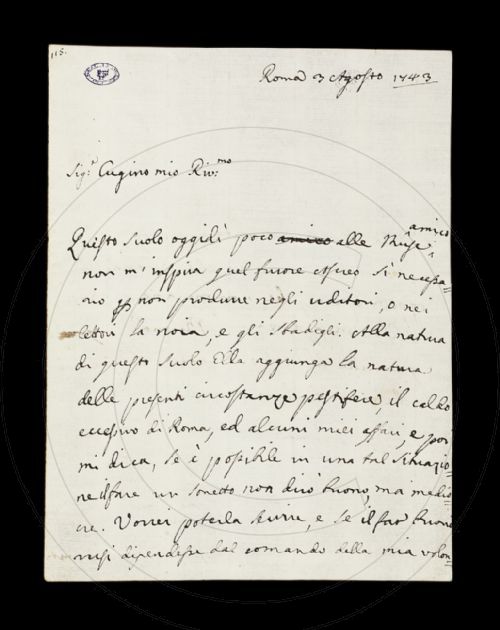 115.
Roma 3 Agosto 1743
Sig.r Cugino mio Riv:mo
Questo suolo oggidì poco amico alle Muse amico
non m'inspira quel furore Ascreo sì necessa=
rio p non produrre negli uditori, o nei
lettori la noia, e gli sbadigli. Alla natura
di questo suolo Ella aggiunga la natura
delle presenti circostanze pestifere, il caldo
eccessivo di Roma, ed alcuni miei affari, e poi
mi dica, se è possibile in una tal situazio=
ne il fare un sonetto non dirò buono, ma medio=
cre. Vorrei poterla servire, e se il far buoni
versi dipendesse dal comando della mia volon=